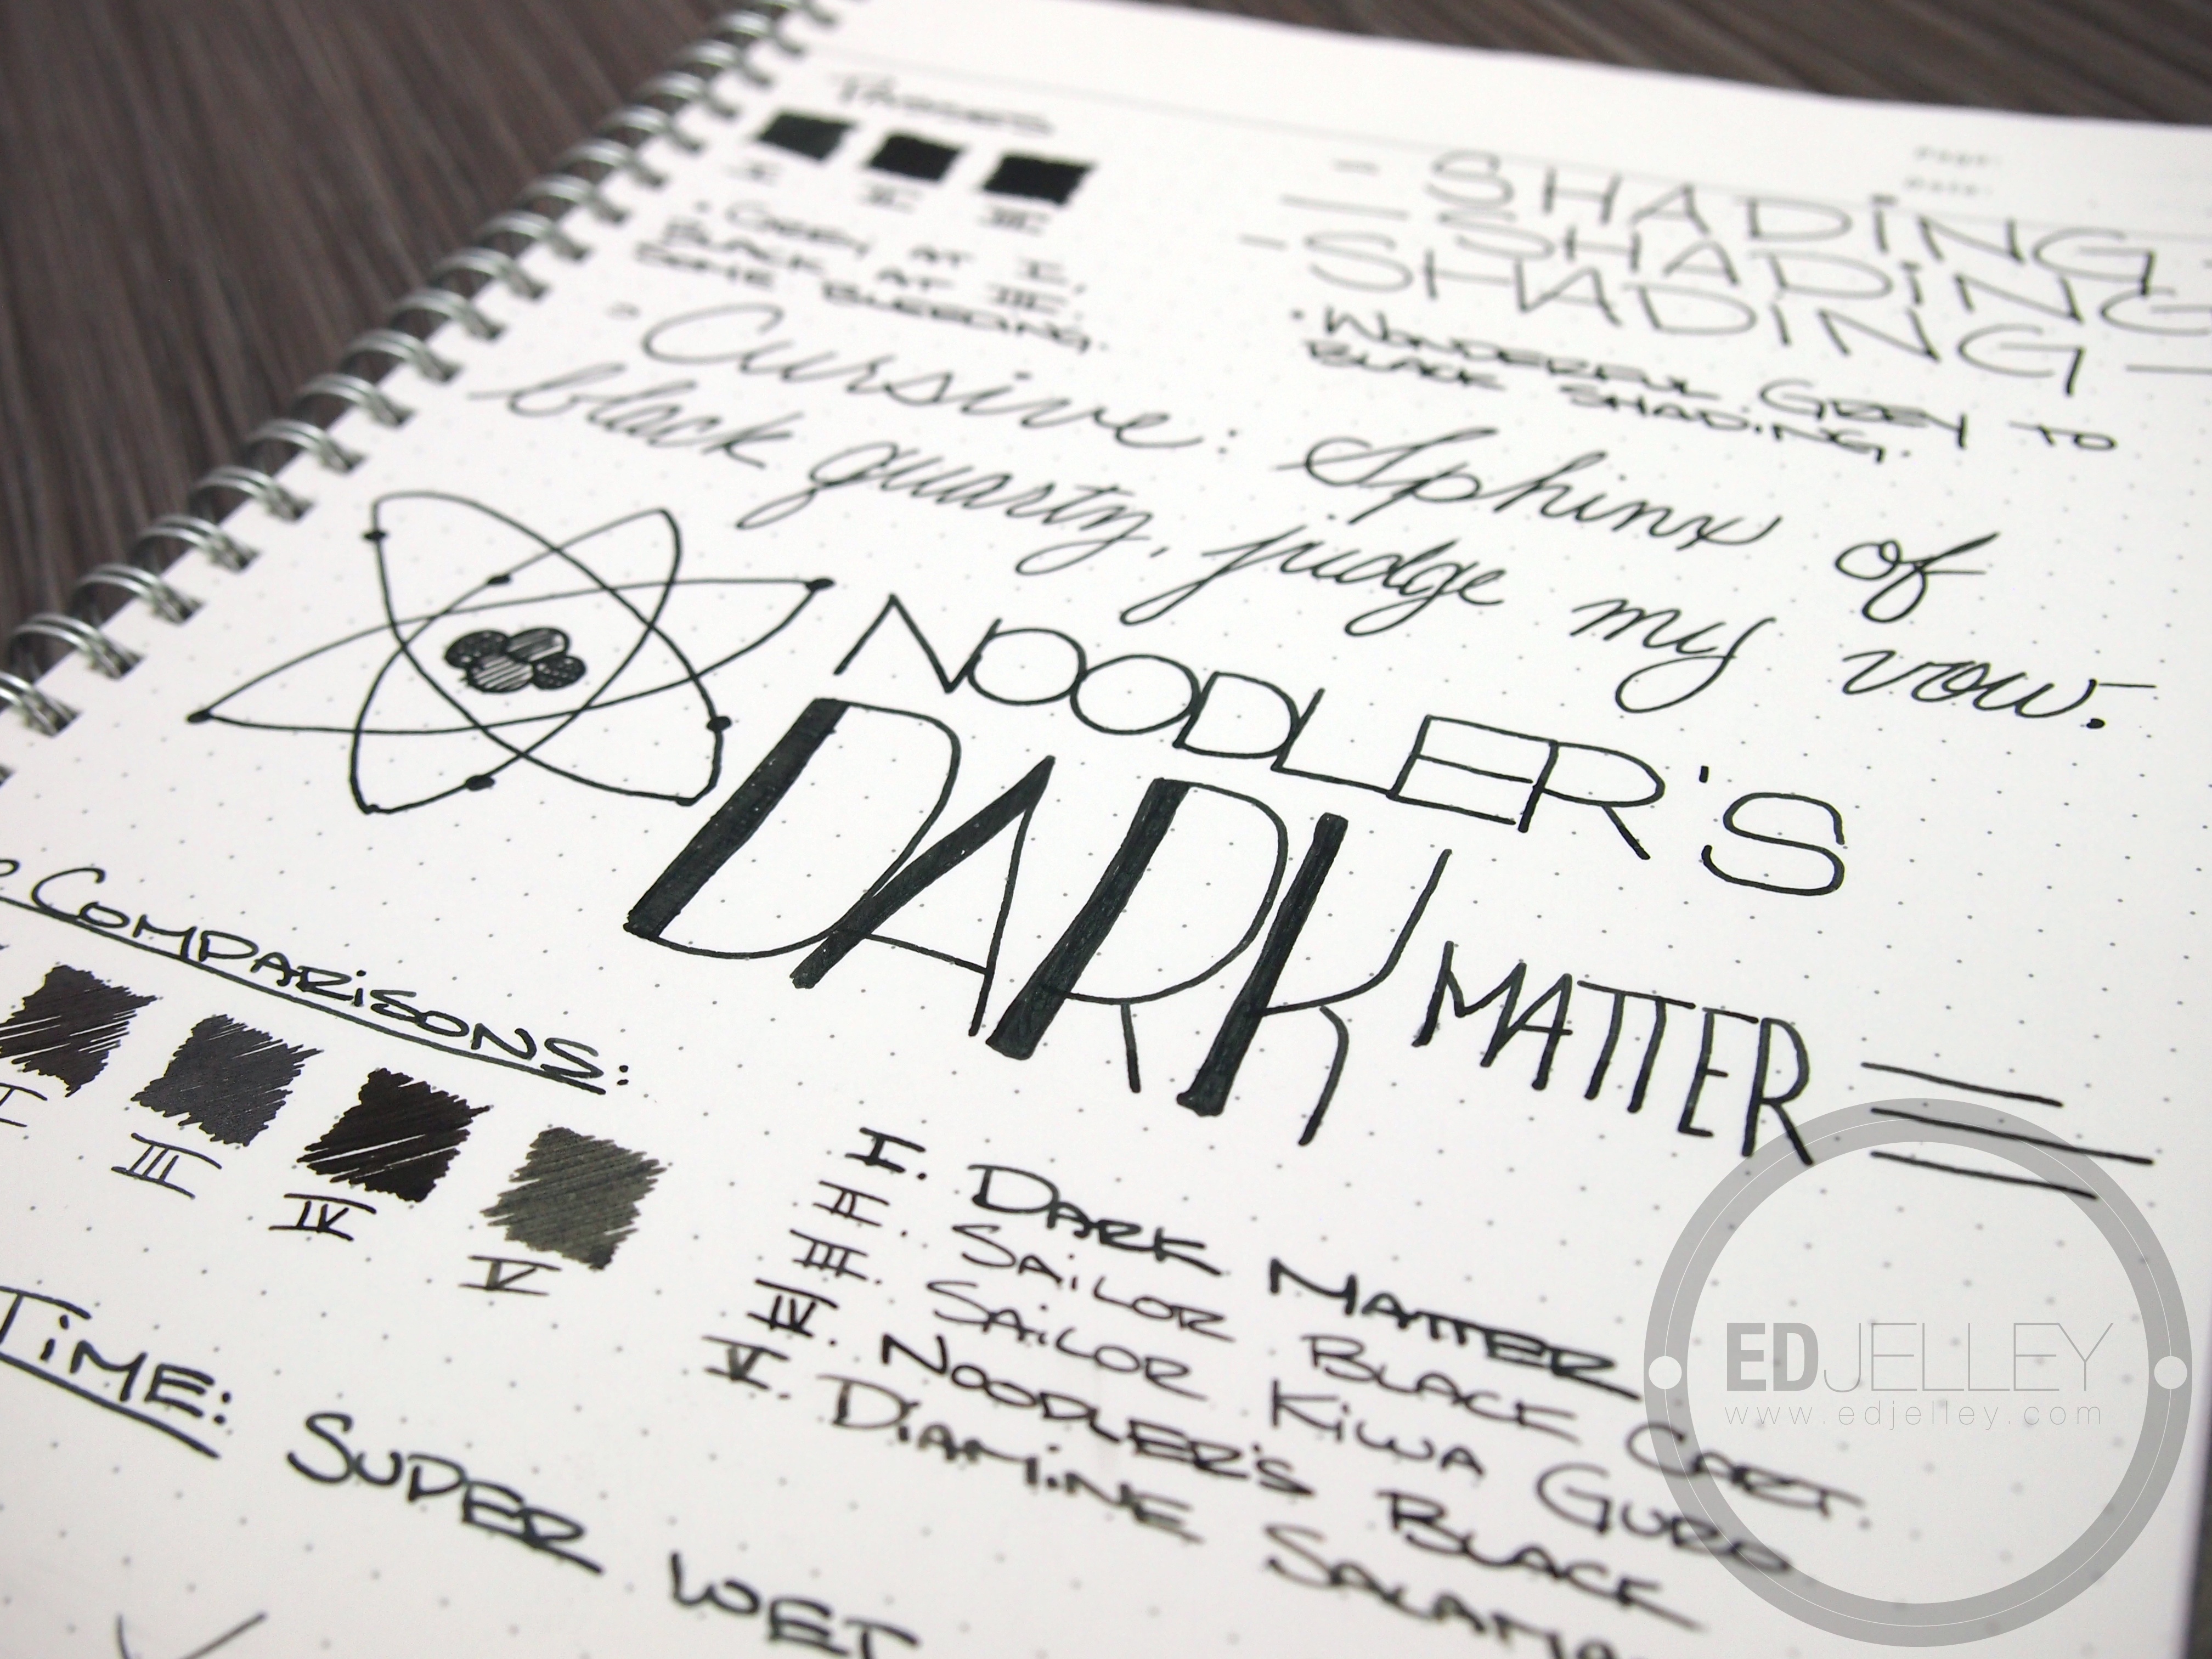 I II III
• GREY AT I,
BLACK AT III.
SOME BLEEDING.
- SHADING -
- SHADING -
- SHADING -
• WONDERFUL GREY TO
BLACK SHADING.
• Cursive: Sphinx of
black quartz, judge my vow.
NOODLER'S
DARK MATTER
COMPARISONS:
III IV V
I. DARK MATTER
II. SAILOR BLACK CART.
III. SAILOR KIWA GURO
IV. NOODLER'S BLACK
V. DIAMINE
TIME: SUPER WET
EDJELLEY
www.edjelley.com